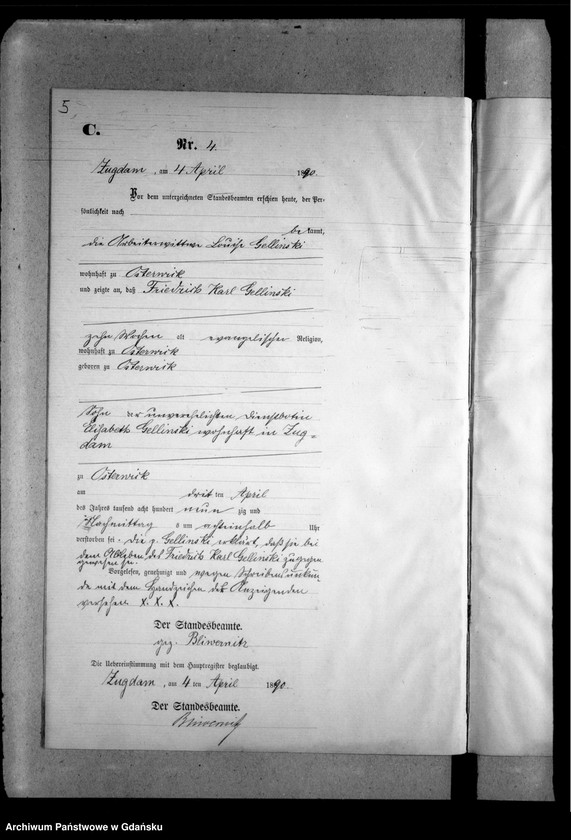 5
C.
Nr. 4.
Zugdam, am 4 April 1890.
Vor dem unterzeichneten Standesbeamten erschien heute, der Per-
sönlichkeit nach
be kannt,
die Arbeiterwittwe Louise Gellinski
wohnhaft zu Osterwick
und zeigte an, daß Friedrich Karl Gellinski
zehn Wochen alt evangelischer Religion,
wohnhaft zu Osterwick
geboren zu Osterwick
Sohn der unverehelichten Dienstbotin
Elisabeth Gellinski wohnhaft in Zug-
dam
zu Osterwick
am dritten April
des Jahres tausend acht hundert neun zig und
Nachmittags um achteinhalb Uhr
verstorben sei. die g. Gellinski erklärt, daß sie bei
dem Ableben des Friedrich Karl Gellinski zugegen
gewesen sei.
Vorgelesen, genehmigt und wegen Schreibensunkun
de mit dem Handzeichen des Anzeigenden
versehen X. X. X.
Der Standesbeamte.
gez. Bliwernitz
Die Uebereinstimmung mit dem Hauptregister beglaubigt.
Zugdam, am 4 ten April 1890.
Der Standesbeamte.
Bliwernitz
Archiwum Państwowe w Gdańsku